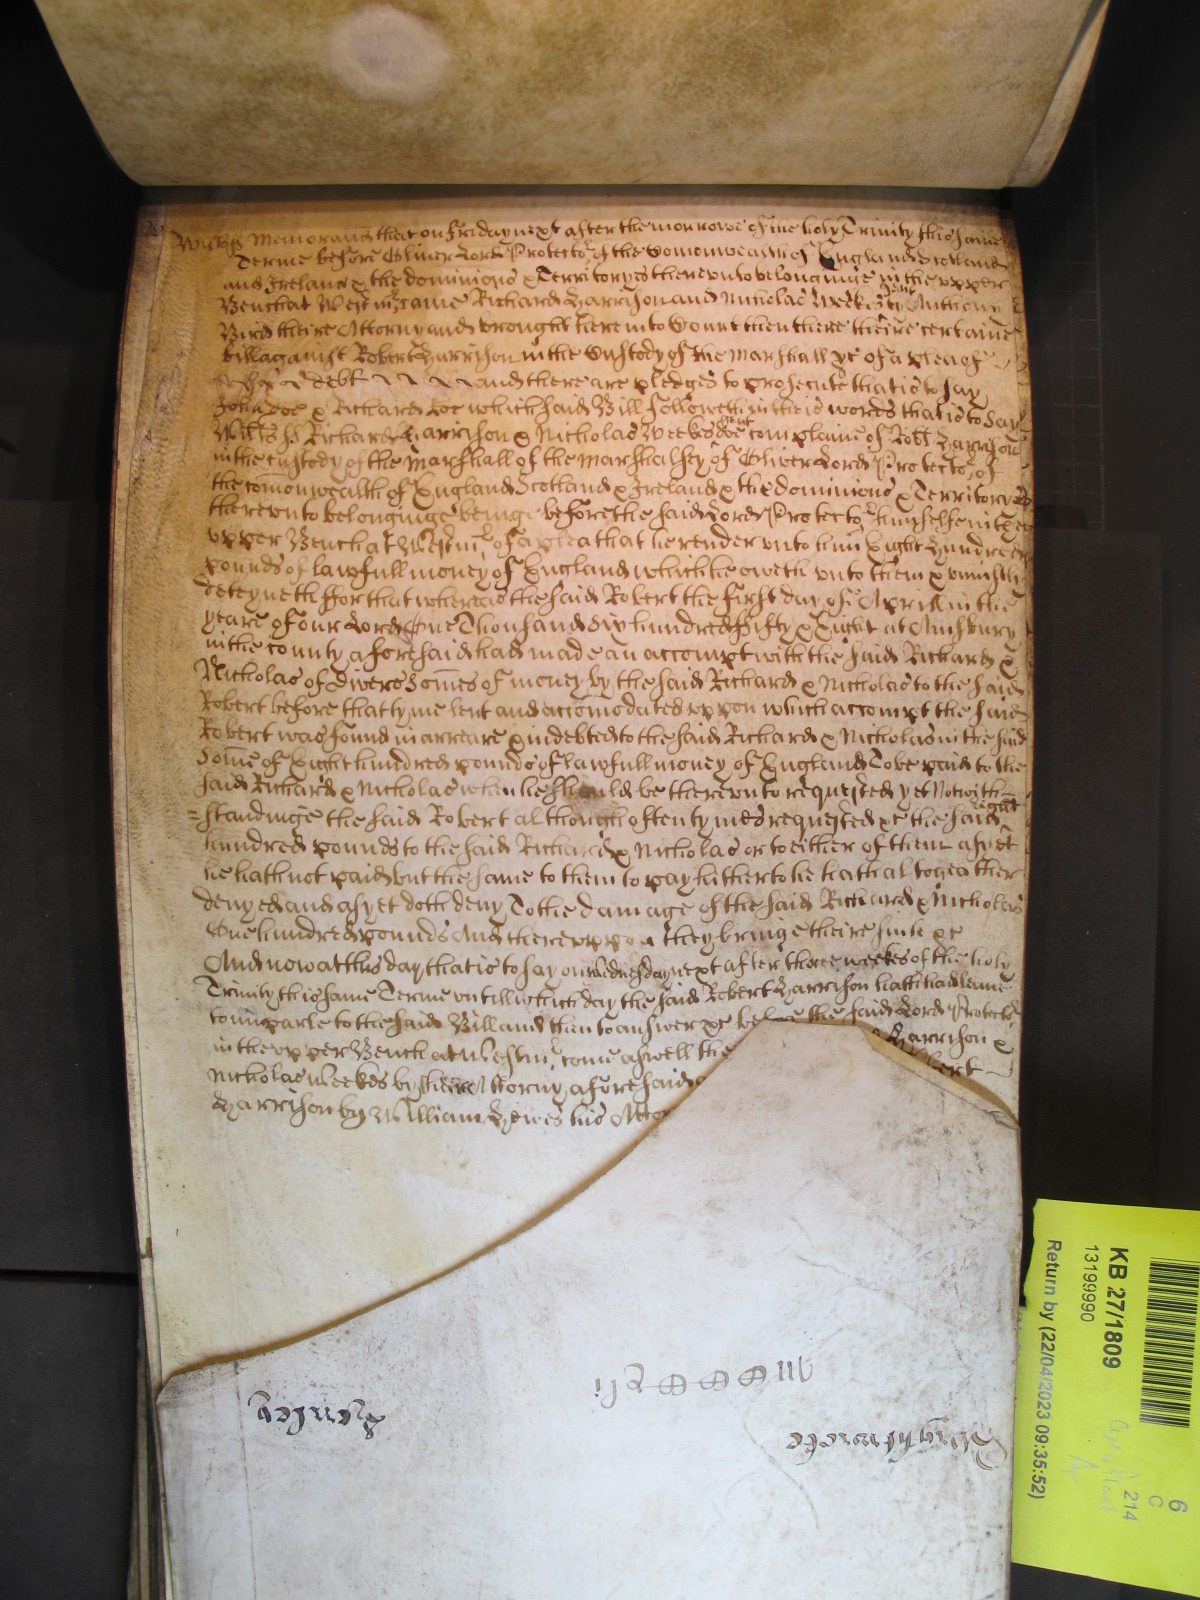 Wiltes Memorand that on Friday next after the morrowe of the holy Trinity this same
Terme before Oliver Lord Protector of the Comonwealth of England Scotland
and Ireland & the dominions & Territoryes thereunto belonginge in the upper
Bench at Westmr came Richard Harrison and Nicholas Weekes gent by Anthony
Bird theire Attorny and brought here into Court then there theire certaine
bill against Robert Harrison in the Custody of the Marshall &c of a plea of
debt and there are pledges to prosecute that is to say
John Doe & Richard Roe which said Bill followeth in theis words that is to say
Wiltes ss Richard Harrison & Nicholas Weekes gent complaine of Robt Harrison
in the custody of the Marshall of the Marshalsey of Oliver Lord Protector of
the comonwealth of England Scotland & Ireland & the dominions & Territoryes
thereunto belonginge beinge before the said Lord Protector himselfe in the
upper Bench at Westmr of a plea that he render unto him Eight Hundred
pounds of lawfull money of England which he oweth unto them & uniustly
deteyneth ffor that whereas the said Robert the first day of Aprill in the
yeare of our Lord One Thousand six hundred ffifty & Eight at
in the county aforesaid had made an accompt with the said Richard &
Nicholas of divers somes of money by the said Richard & Nicholas to the said
Robert before that tyme lent and accomodated uppon which accompt the said
Robert was found in arreare & indebted to the said Richard & Nicholas in the said
Some of Eight hundred pounds of lawfull money of England To be paid to the
said Richard & Nicholas when he should be thereunto requested yet Notwith
=standinge the said Robert although often tymes requested &c the said eight
hundred pounds to the said Richard & Nicholas or to either of them as yet
he hath not paid but the same to them to pay hitherto he hath altogeather
denyed and as yet doth deny To the damage of the said Richard & Nicholas
One hundred pounds And thereuppon they bringe theire suite &c
And now at this day that is to say on wednesday next after three weekes of the holy
Trinity this same Terme untill which day the said Robert Harrison hath had leave
to imparle to the said Bill and then to answer &c before the said Lord Protector
in the upper Bench at Westmr come aswell the Harrison &
Nicholas Weekes by theire Attorny aforesaid bert
Harrison by William his Attor
KB 27/1809
13199990
Return by (22/04/2023 09:35:52)
6
C
214
A